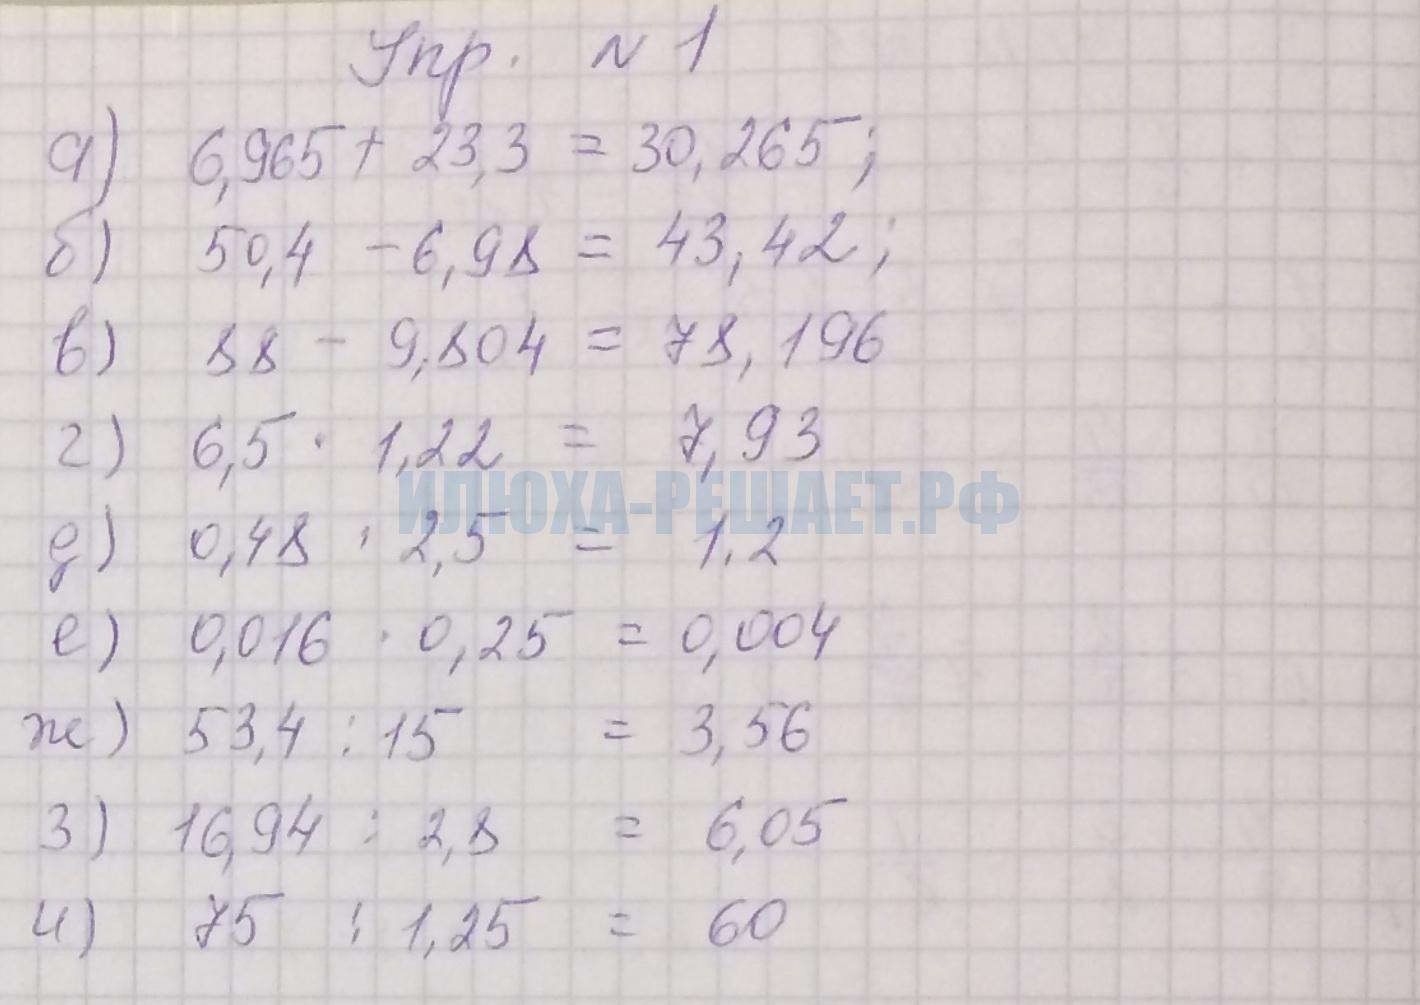 Упр. N 1
а) 6,965 + 23,3 = 30,265;
б) 50,4 - 6,98 = 43,42;
в) 88 - 9,804 = 78,196
г) 6,5 · 1,22 = 7,93
ИЛЮХА-РЕШАЕТ.РФ
д) 0,48 · 2,5 = 1.2
е) 0,016 · 0,25 = 0,004
ж) 53,4 : 15 = 3,56
з) 16,94 : 2,8 = 6,05
и) 75 : 1,25 = 60